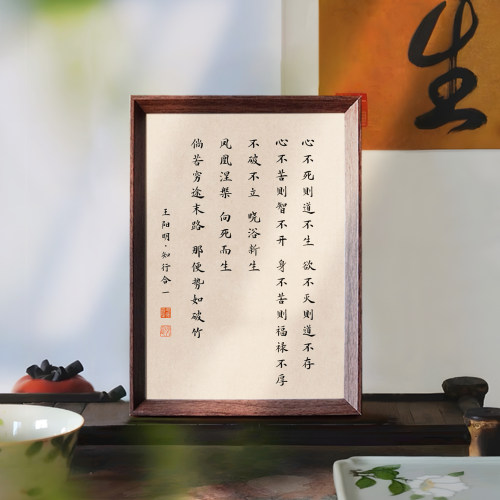 心不死则道不生 欲不灭则道不存
心不苦则智不开 身不苦则福禄不厚
不破不立 晓浴新生
凤凰涅槃 向死而生
倘若穷途末路 那便势如破竹
王阳明·知行合一
生